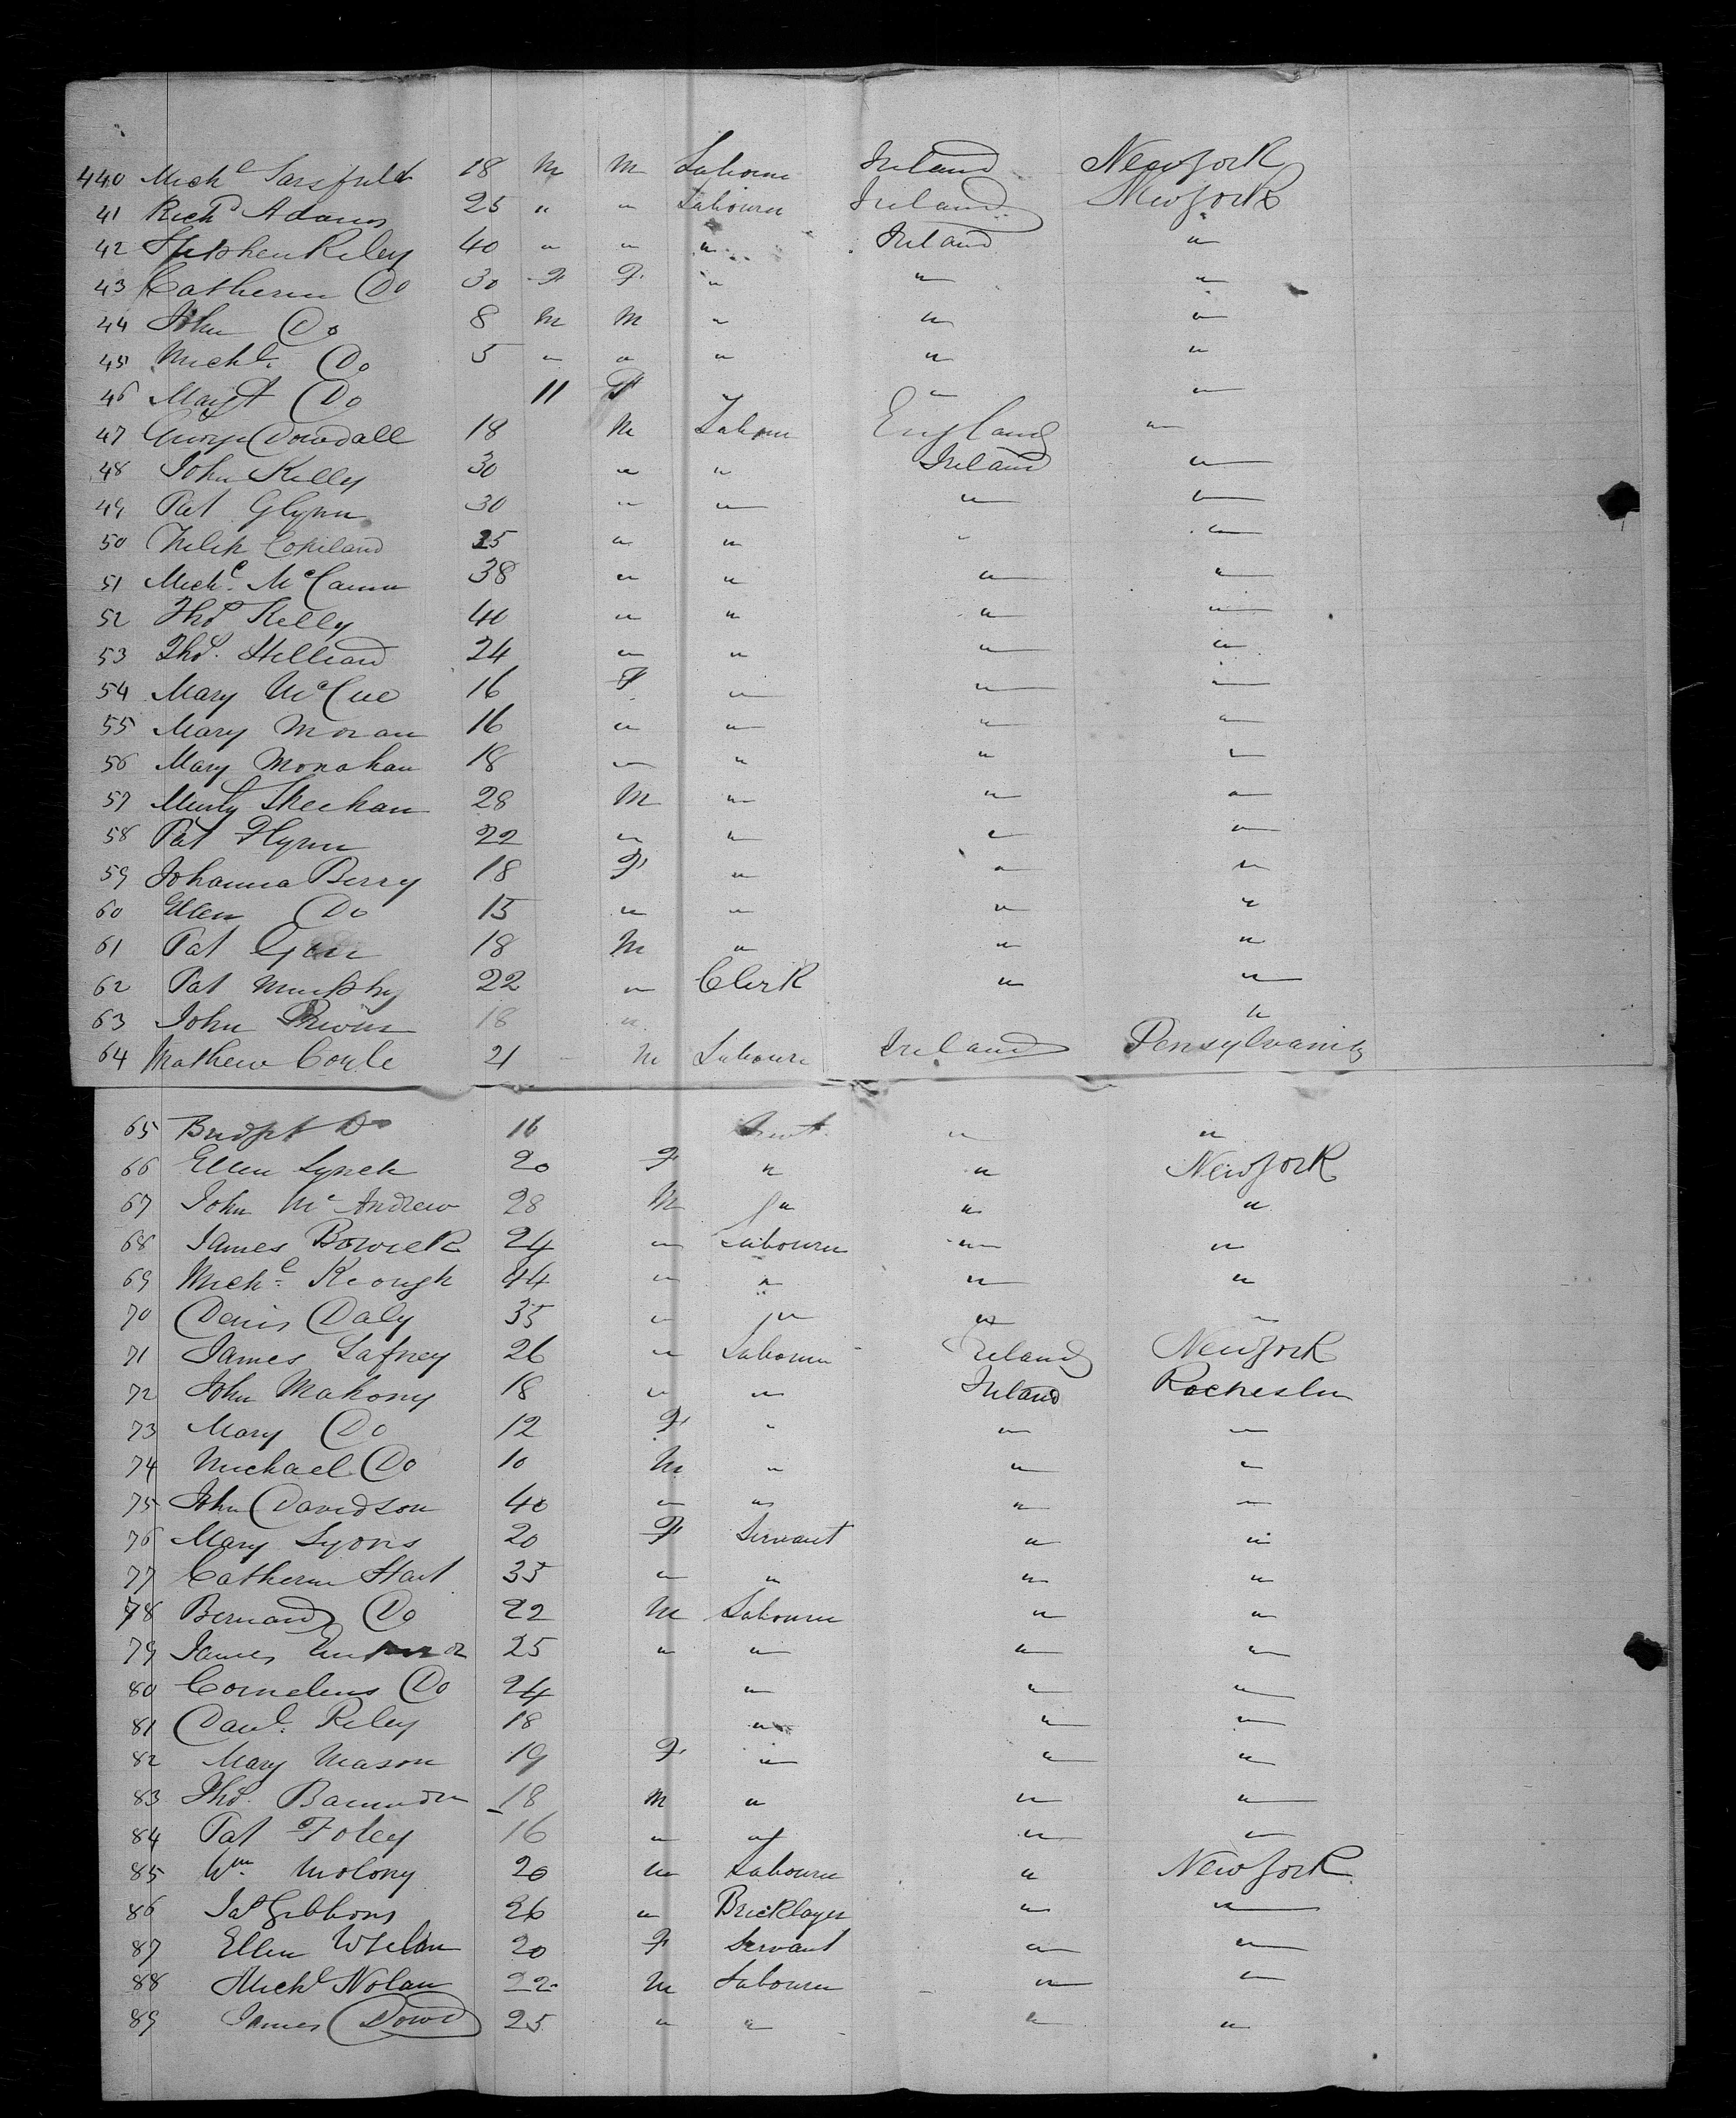 440 Michl Sarsfield 18 M M Labourer Ireland New York
41 Richd Adams 25 " " Labourer Ireland New York
42 Stephen Riley 40 " " " Ireland "
43 Catherine Do 30 F F " " "
44 John Do 8 M M " " "
45 Michl. Do 5 " " " " "
46 Margt Do 11 F " " "
47 George Dowdall 18 M Labour England "
48 John Kelly 30 " " Ireland "
49 Pat Glynn 30 " " " "
50 Copeland 25 " " " "
51 Michl. McCann 38 " " " "
52 Thos Kelly 40 " " " "
53 Thos. Hilliard 24 " " " "
54 Mary McCue 16 F " " "
55 Mary Moran 16 " " " "
56 Mary Monahan 18 " " " "
57 Murty Sheehan 28 M " " "
58 Pat Flynn 22 " " " "
59 Johanna Berry 18 F " " "
60 Ellen Do 15 " " " "
61 Pat 18 M " " "
62 Pat Murphy 22 " Clerk " "
63 John 18 " "
64 Mathew Coyle 21 M Labourer Ireland Pensylvania
65 Bridget Do 16 Servt. " "
66 Ellen Lynch 20 F " " New York
67 John McAndrew 28 M " " "
68 James Bowick 24 " Labourer " "
69 Michl. Keough 44 " " " "
70 Denis Daly 35 " " " "
71 James Lafney 26 " Labourer Ireland New York
72 John Mahony 18 " " Ireland Rochester
73 Mary Do 12 F " " "
74 Michael Do 10 M " " "
75 John Davidson 40 " " " "
76 Mary Lyons 20 F Servant " "
77 Catherine Hart 35 " " " "
78 Bernard Do 22 M Labourer " "
79 James 25 " " " "
80 Cornelius Do 24 " " "
81 Danl. Riley 18 " " "
82 Mary Mason 19 F " " "
83 Thos. 18 M " " "
84 Pat Foley 16 " " " "
85 Wm. Molony 20 M Labourer " New York
86 Jas Gibbons 26 " Bricklayer " "
87 Ellen Whelan 20 F Servant " "
88 Michl Nolan 22 M Labourer " "
89 James Dowd 25 " " " "